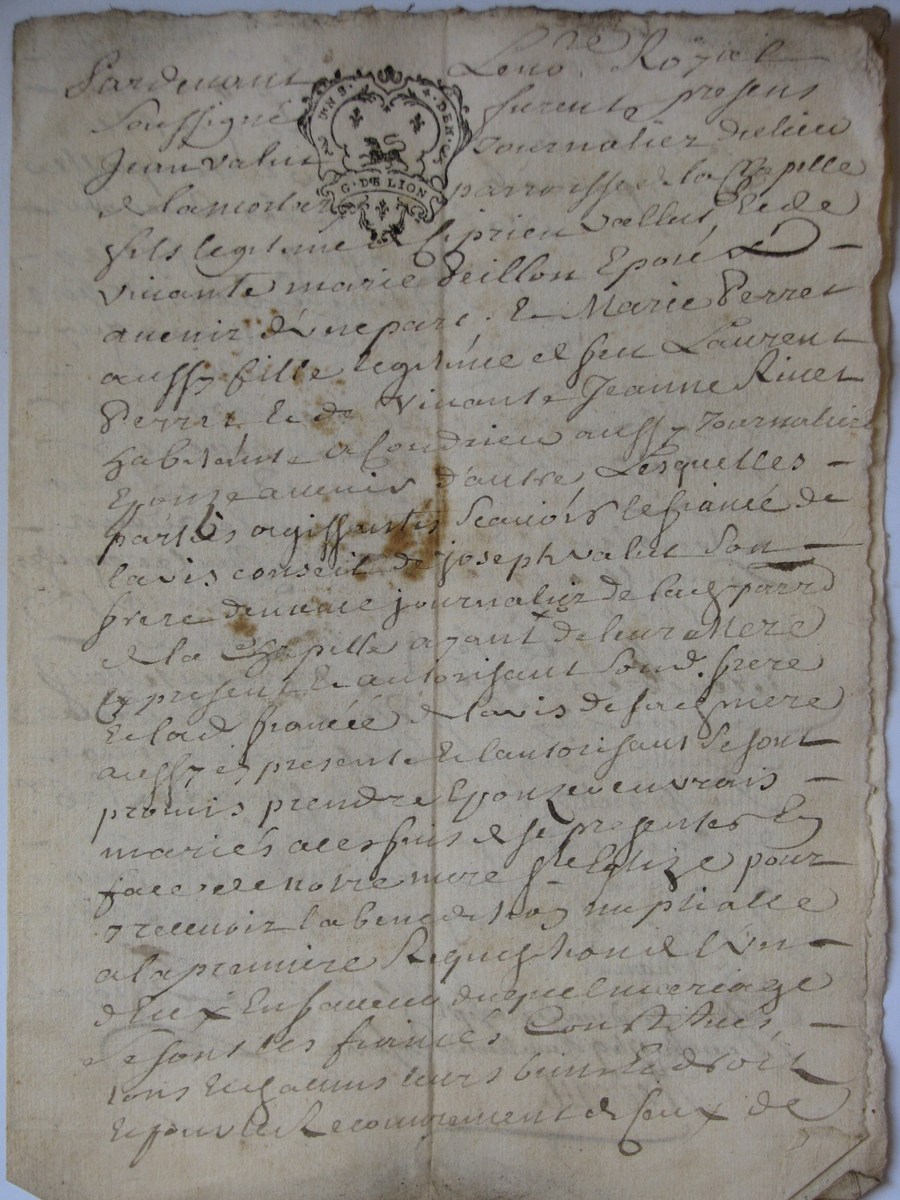 Pardevant Le no.re Royal
Soussigné furent presens
Jean valut Journalier du lieu
de lamorlas parroisse de la Chapelle
fils legitime de Ciprien vallut, et de
vivante marie Beillon Epoxé
avenir d'une part, Et Marie Perret
aussy fille legitime de feu Laurent
Perret Et de Vivante Jeanne Rivet
habitante a Condrieu aussy Journaliere
Epouze avenir d'autre Lesquelles
parties agissantes Scavoir le fiancé de
lavis conseil de joseph valut son
frere journalier de lad parr
de la Chapelle ayant de leur Mere
Cy present Et autorisant Sond. frere
Et lad fiancée de lavis de sad mere
aussy cy presente Et lautorisant Se sont
promis prendre Epouzer en vrais
mariés a ces fins de se presenter En
face de notre mere S.te Eglize pour
y recevoir la benediction nuptialle
a la premiere Requisition de l'un
d'Eux En faveur duquel mariage
Se sont les fiancés Constitués
tous Et chacuns leurs biens Et droits
Et pour le Recouvrement de Ceux de
G. DE LION